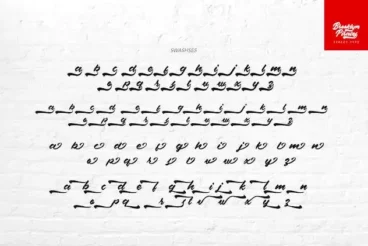 Brooklyn
SWASHES
a b c d e f g h i j k l m n
o p q r s t u v w x y z
a b c d e f g h i j k l m n
o p q r s t u v w x y z
a b c d e f g h i j k l m n
o p q r s t u v w x y z
a b c d e f g h i j k l m n
o p q r s t u v w x y z